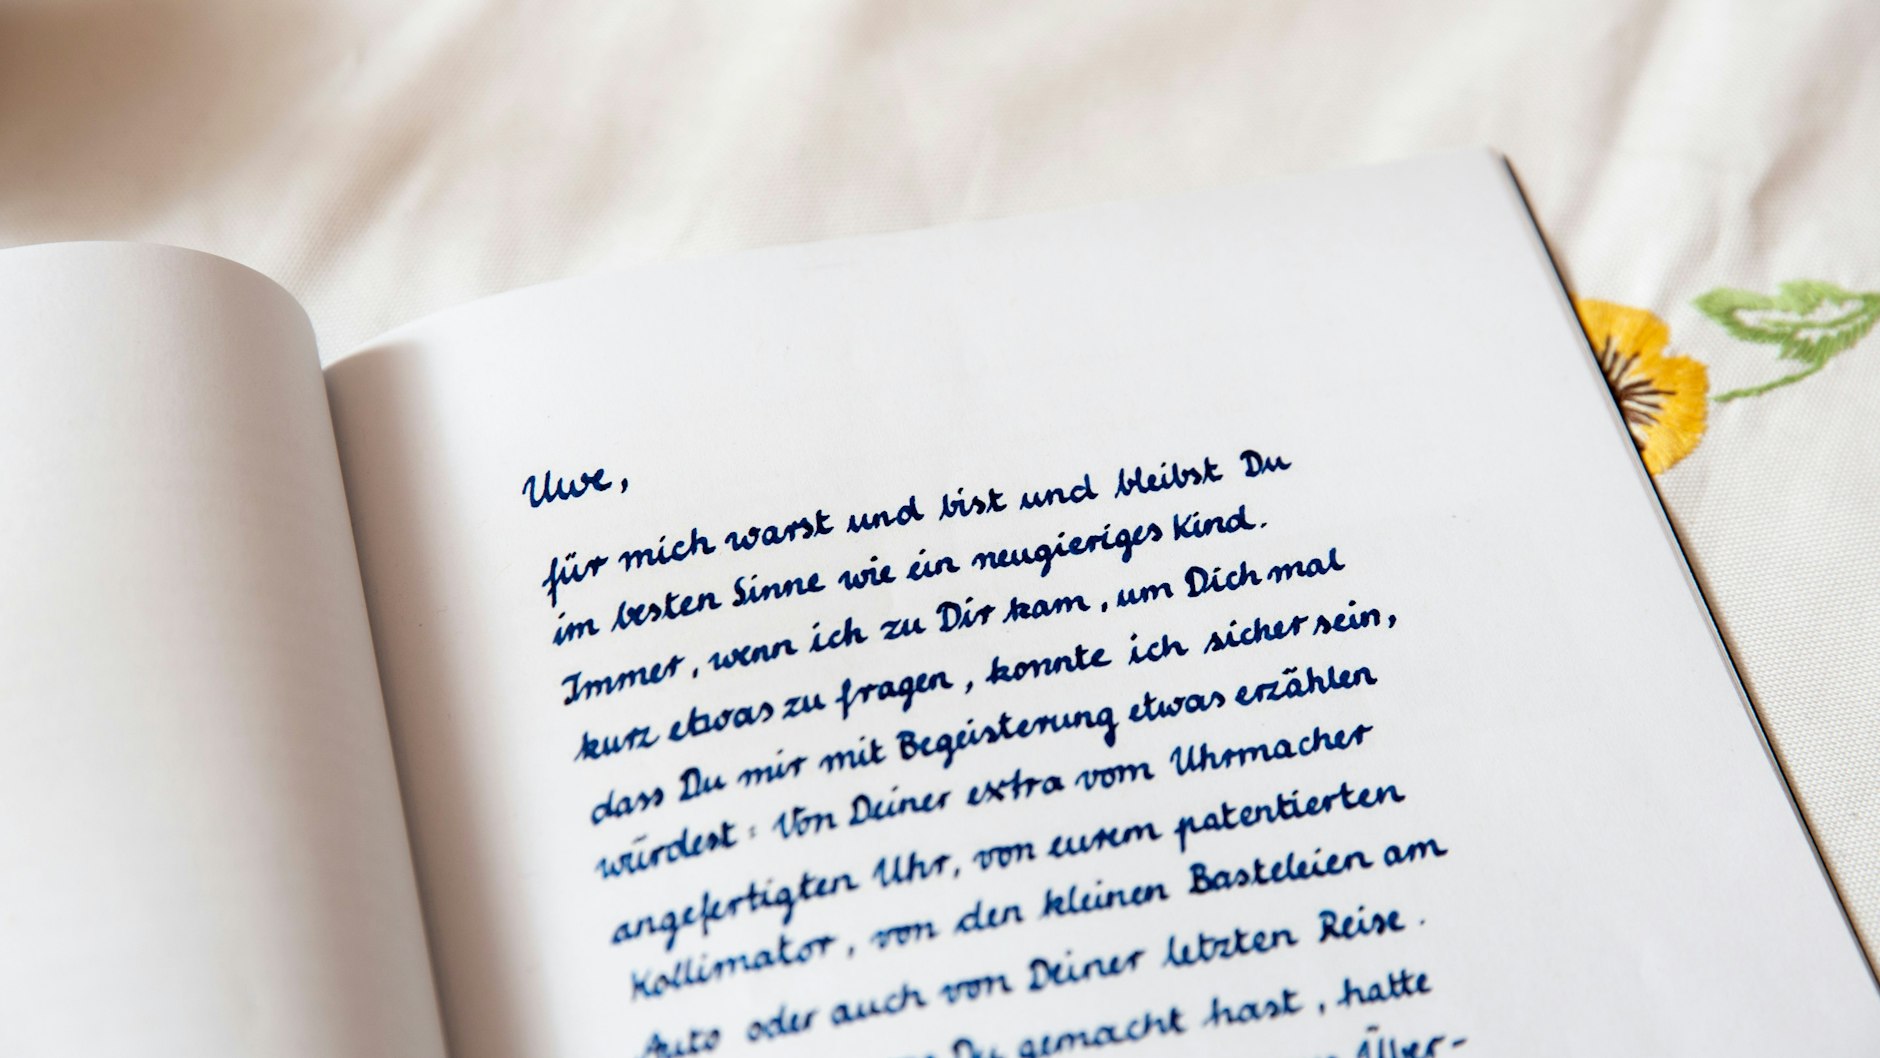 Uwe,
für mich warst und bist und bleibst Du
im besten Sinne wie ein neugieriges Kind.
Immer, wenn ich zu Dir kam, um Dich mal
kurz etwas zu fragen, konnte ich sicher sein,
dass Du mir mit Begeisterung etwas erzählen
würdest: Von Deiner extra vom Uhrmacher
angefertigten Uhr, von eurem patentierten
Kollimator, von den kleinen Basteleien am
Auto oder auch von Deiner letzten Reise.
Du gemacht hast, hatte
Über-